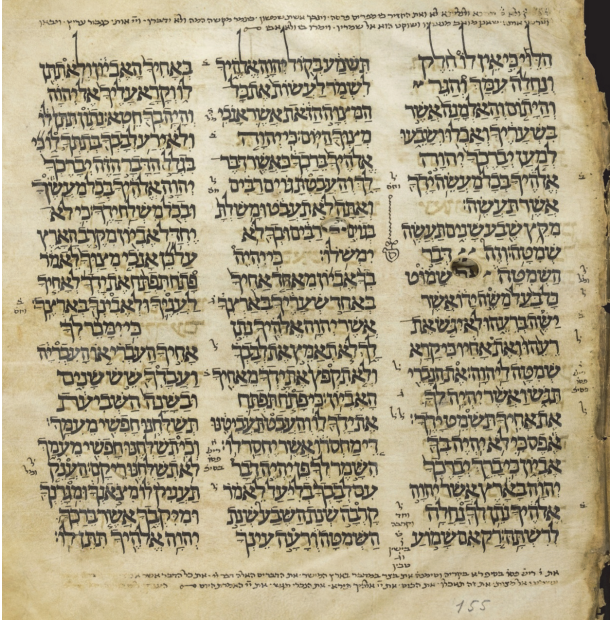 הלוי כי אין לו חלק
ונחלה עמך והגר
והיתום והאלמנה אשר
בשעריך ואכלו ושבעו
למען יברכך יהוה
אלהיך בכל מעשה ידך
אשר תעשה׃
מקץ שבע שנים תעשה
שמטה׃ וזה דבר
השמטה שמוט
כל בעל משה ידו אשר
ישה ברעהו לא יגש את
רעהו ואת אחיו כי קרא
שמטה ליהוה׃ את הנכרי
תגש ואשר יהיה לך
את אחיך תשמט ידך׃
אפס כי לא יהיה בך
אביון כי ברך יברכך
יהוה בארץ אשר יהוה
אלהיך נתן לך נחלה
לרשתה׃ רק אם שמוע
תשמע בקול יהוה אלהיך
לשמר לעשות את כל
המצוה הזאת אשר אנכי
מצוך היום׃ כי יהוה
אלהיך ברכך כאשר דבר
לך והעבטת גוים רבים
ואתה לא תעבט ומשלת
בגוים רבים ובך לא
ימשלו׃ כי יהיה
בך אביון מאחד אחיך
באחד שעריך בארצך
אשר יהוה אלהיך נתן
לך לא תאמץ את לבבך
ולא תקפץ את ידך מאחיך
האביון׃ כי פתח תפתח
את ידך לו והעבט תעביטנו
די מחסרו אשר יחסר לו׃
השמר לך פן יהיה דבר
עם לבבך בליעל לאמר
קרבה שנת השבע שנת
השמטה ורעה עינך
באחיך האביון ולא תתן
לו וקרא עליך אל יהוה
והיה בך חטא׃ נתון תתן לו
ולא ירע לבבך בתתך לו כי
בגלל הדבר הזה יברכך
יהוה אלהיך בכל מעשך
ובכל משלח ידך׃ כי לא
יחדל אביון מקרב הארץ
על כן אנכי מצוך לאמר
פתח תפתח את ידך לאחיך
לעניך ולאביונך בארצך׃
כי ימכר לך
אחיך העברי או העבריה
ועבדך שש שנים
ובשנה השביעת
תשלחנו חפשי מעמך׃
וכי תשלחנו חפשי מעמך
לא תשלחנו ריקם׃ העניק
תעניק לו מצאנך ומגרנך
ומיקבך אשר ברכך
יהוה אלהיך תתן לו׃
155